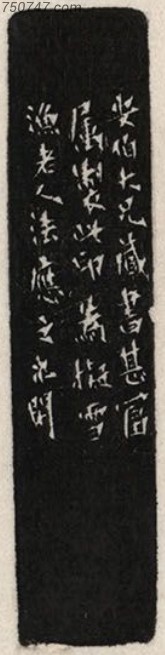 750747.com
安伯大兄藏書甚富
屬製此印為擬雪
漁老人法應之小開